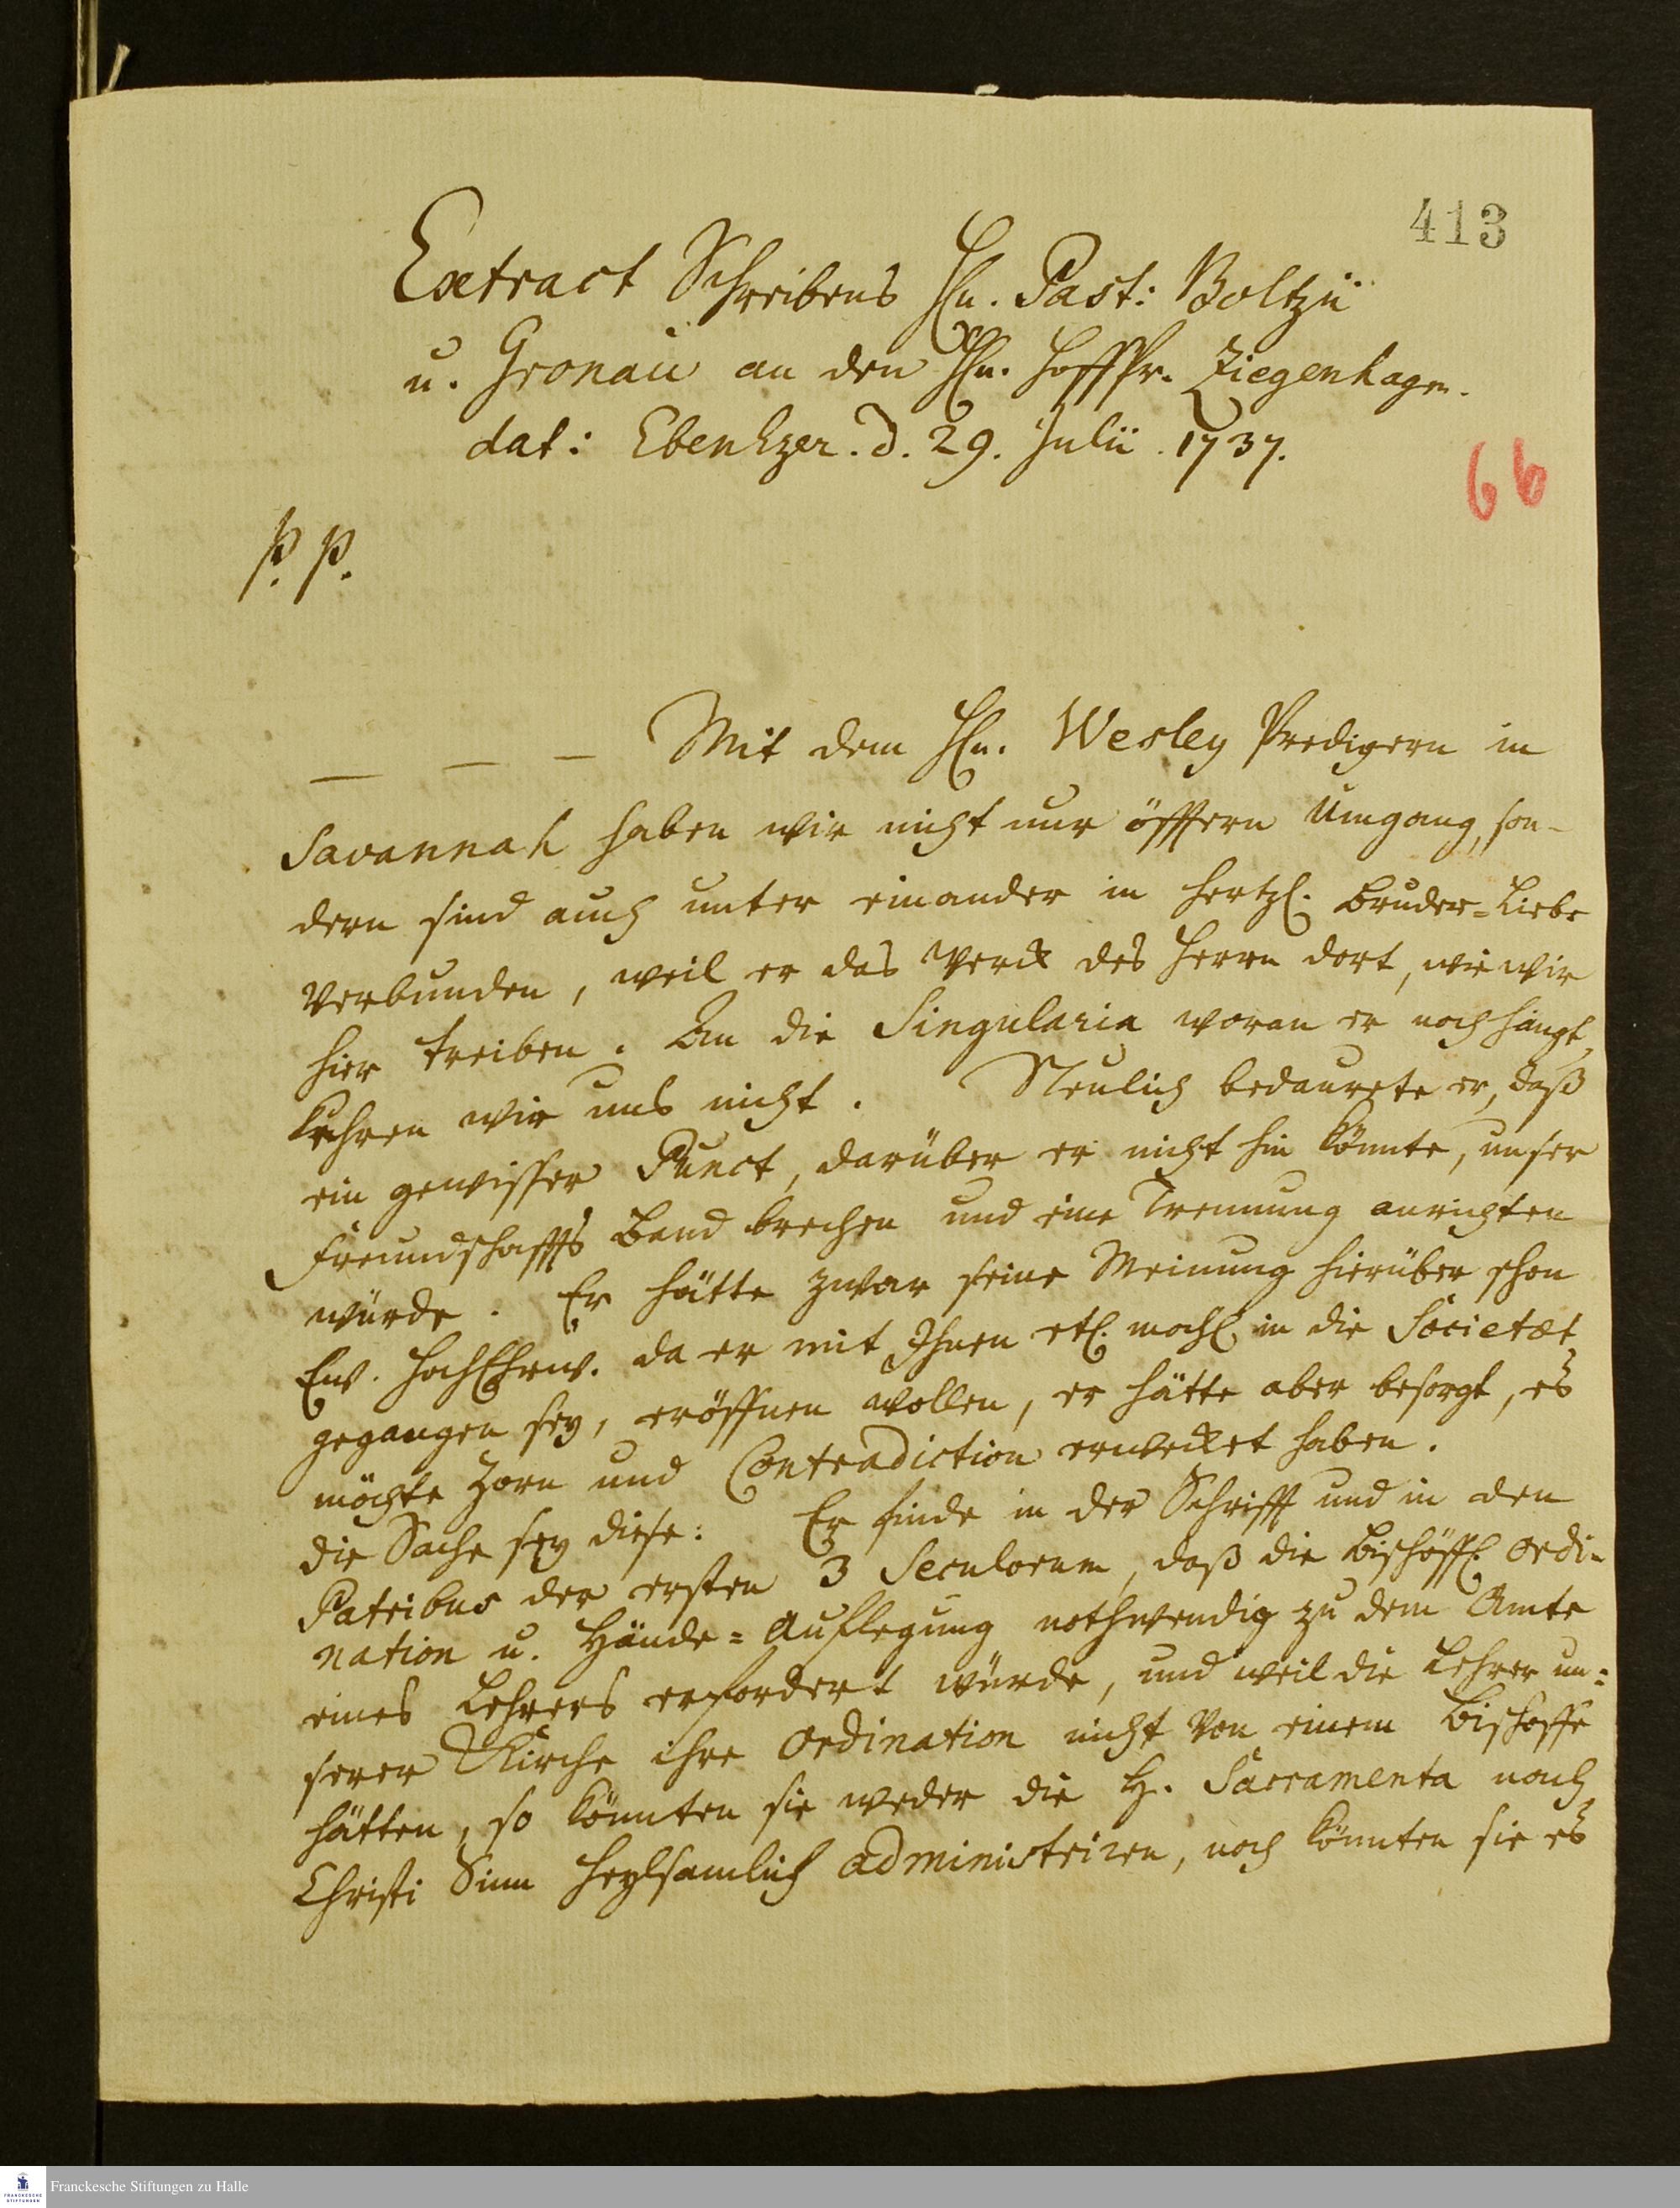 413
Extract Schreibens Hn. Past: Boltzii
u. Gronau an den Hn. Hoffpr. Ziegenhagn.
dat: EbenEzer. d. 29. Julii 1737.
66
P. P.
— — — Mit dem Hn. Wesley Predigern in
Savannah haben wir nicht nur öfftern Umgang, son-
dern sind auch unter einander in hertzl. Bruder=Liebe
verbunden, weil er das Werck des Herrn dort, wie wir
hier treiben. An die Singularia woran er noch hängt,
kehren wir uns nicht. Neulich bedaurete er, daß
ein gewisser Punct, darüber er nicht hin könnte, unser
Freundschaffts Band brechen und eine Trennung anrichten
würde. Er hätte zwar seine Meinung hierüber schon
Ew. HochEhrw. da er mit Ihnen etl. mahl in die Societæt
gegangen sey, eröffnen wollen, er hätte aber besorgt, es
möchte Zorn und Contradiction erwecket haben.
die Sache sey diese: Er finde in der Schrifft und in den
Patribus der ersten 3 Seculorum, daß die Bischöffl. Ordi-
nation u. Hände=Auflegung nothwendig zu dem Amte
eines Lehrers erfordert würde, und weil die Lehrer un=
serer Kirche ihre Ordination nicht von einem Bischoffe
hätten, so könnten sie weder die H. Sacramenta nach
Christi Sinn heylsamlich administriren, noch könnten sie es
Franckesche Stiftungen zu Halle